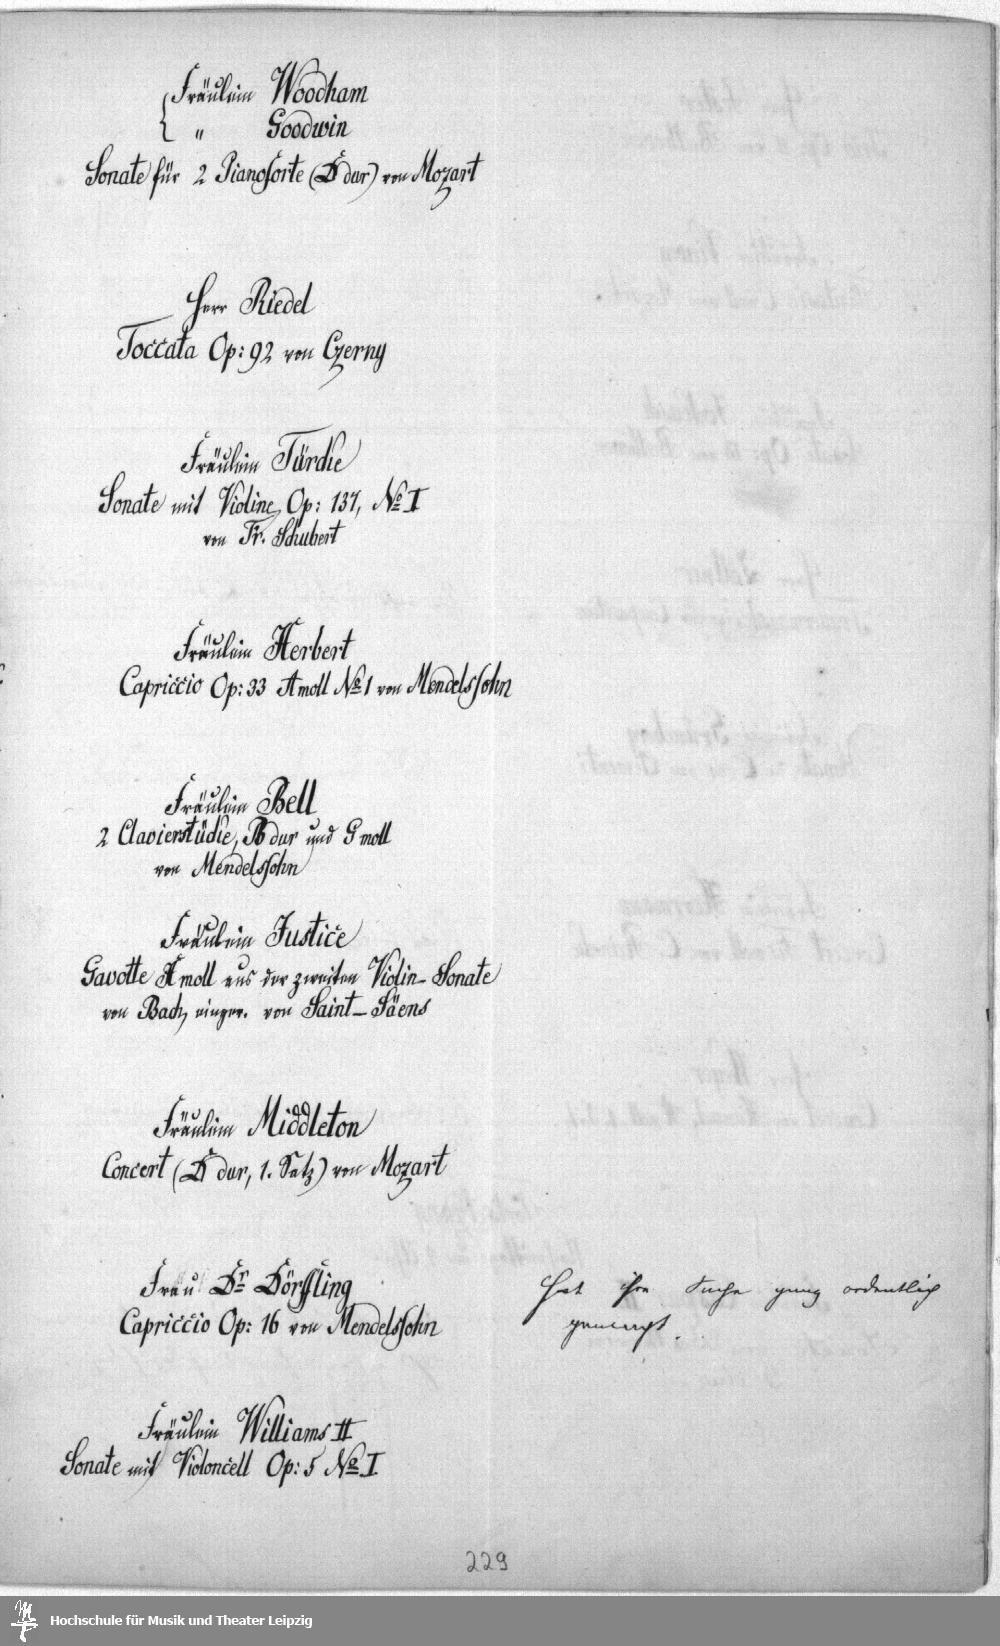 Fräulein Woodham
" Goodwin
Sonate für 2 Pianoforte (D dur) von Mozart
Herr Riedel
Toccata Op: 92 von Czerny
Fräulein Türcke
Sonate mit Violine, Op: 137, No I
von Fr. Schubert
Fräulein Herbert
Capriccio Op: 33 A moll No 1 von Mendelssohn
Fräulein Bell
2 Clavierstücke, B dur und G moll
von Mendelssohn
Fräulein Justice
Gavotte H moll aus der zweiten Violin-Sonate
von Bach, einger. von Saint-Säens
Fräulein Middleton
Concert (D dur, 1. Satz) von Mozart
Frau Dr Dörffling
Capriccio Op: 16 von Mendelssohn
Hat ihre Sache ganz ordentlich
gemacht.
Fräulein Williams II
Sonate mit Violoncell Op: 5 No I
229
Hochschule für Musik und Theater Leipzig